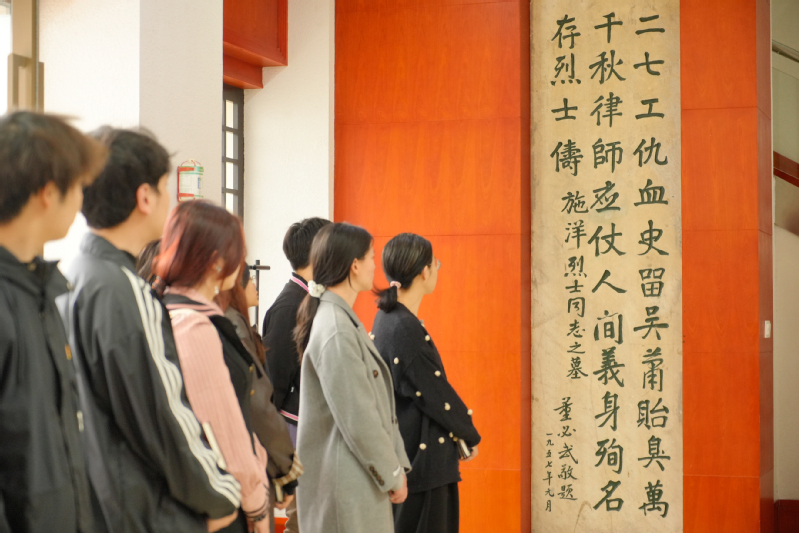 二七工仇血史留吴萧貽臭萬
千秋律師应仗人间義身殉名
存烈士儔
施洋烈士同志之墓
董必武敬題
一九五七年九月